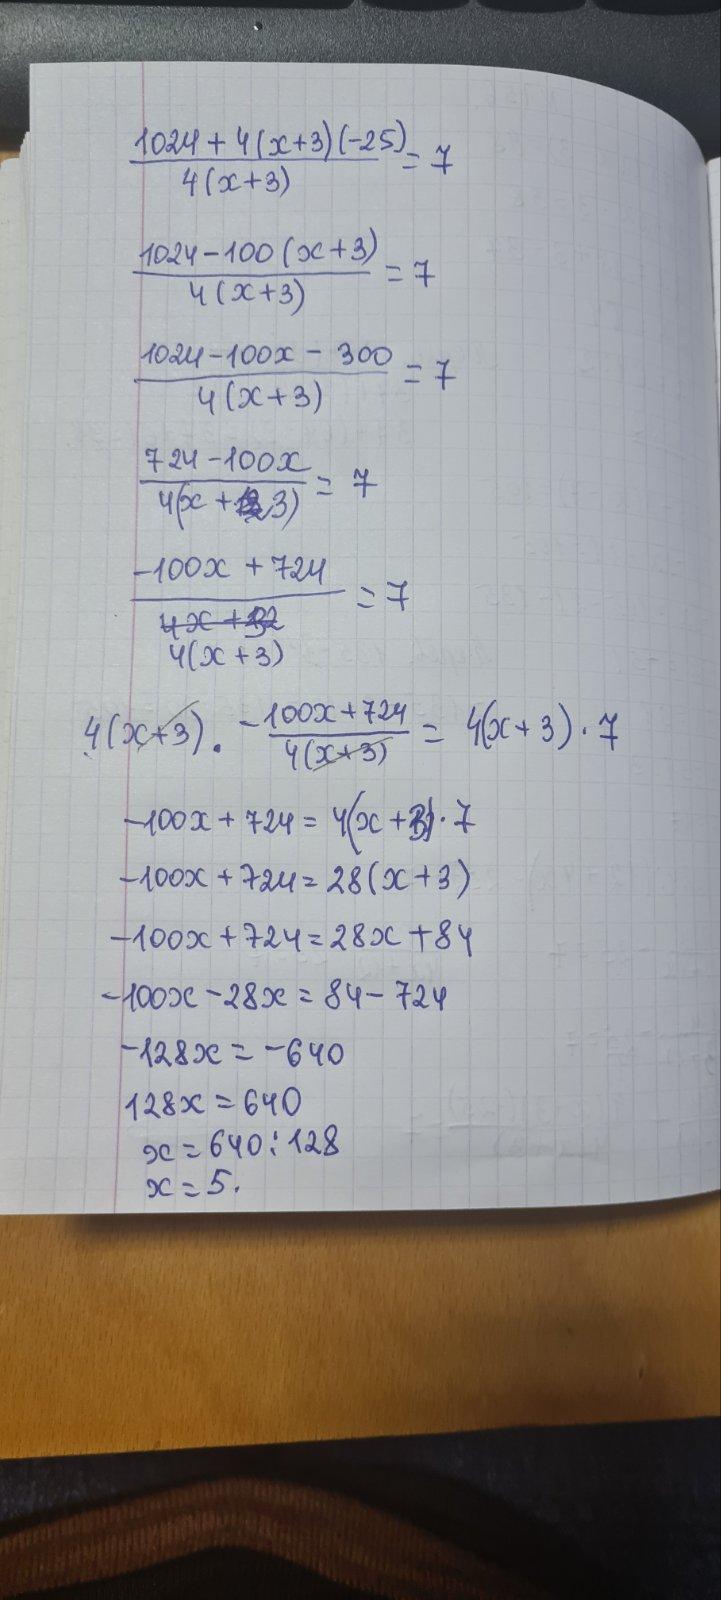 (1024 + 4(x+3)(-25))/(4(x+3)) = 7
(1024 - 100(x+3))/(4(x+3)) = 7
(1024 - 100x - 300)/(4(x+3)) = 7
(724 - 100x)/(4(x + 3)) = 7
(-100x + 724)/(4(x+3)) = 7
4(x+3) · (-100x+724)/(4(x+3)) = 4(x+3) · 7
-100x + 724 = 4(x+3) · 7
-100x + 724 = 28(x+3)
-100x + 724 = 28x + 84
-100x - 28x = 84 - 724
-128x = -640
128x = 640
x = 640 : 128
x = 5.